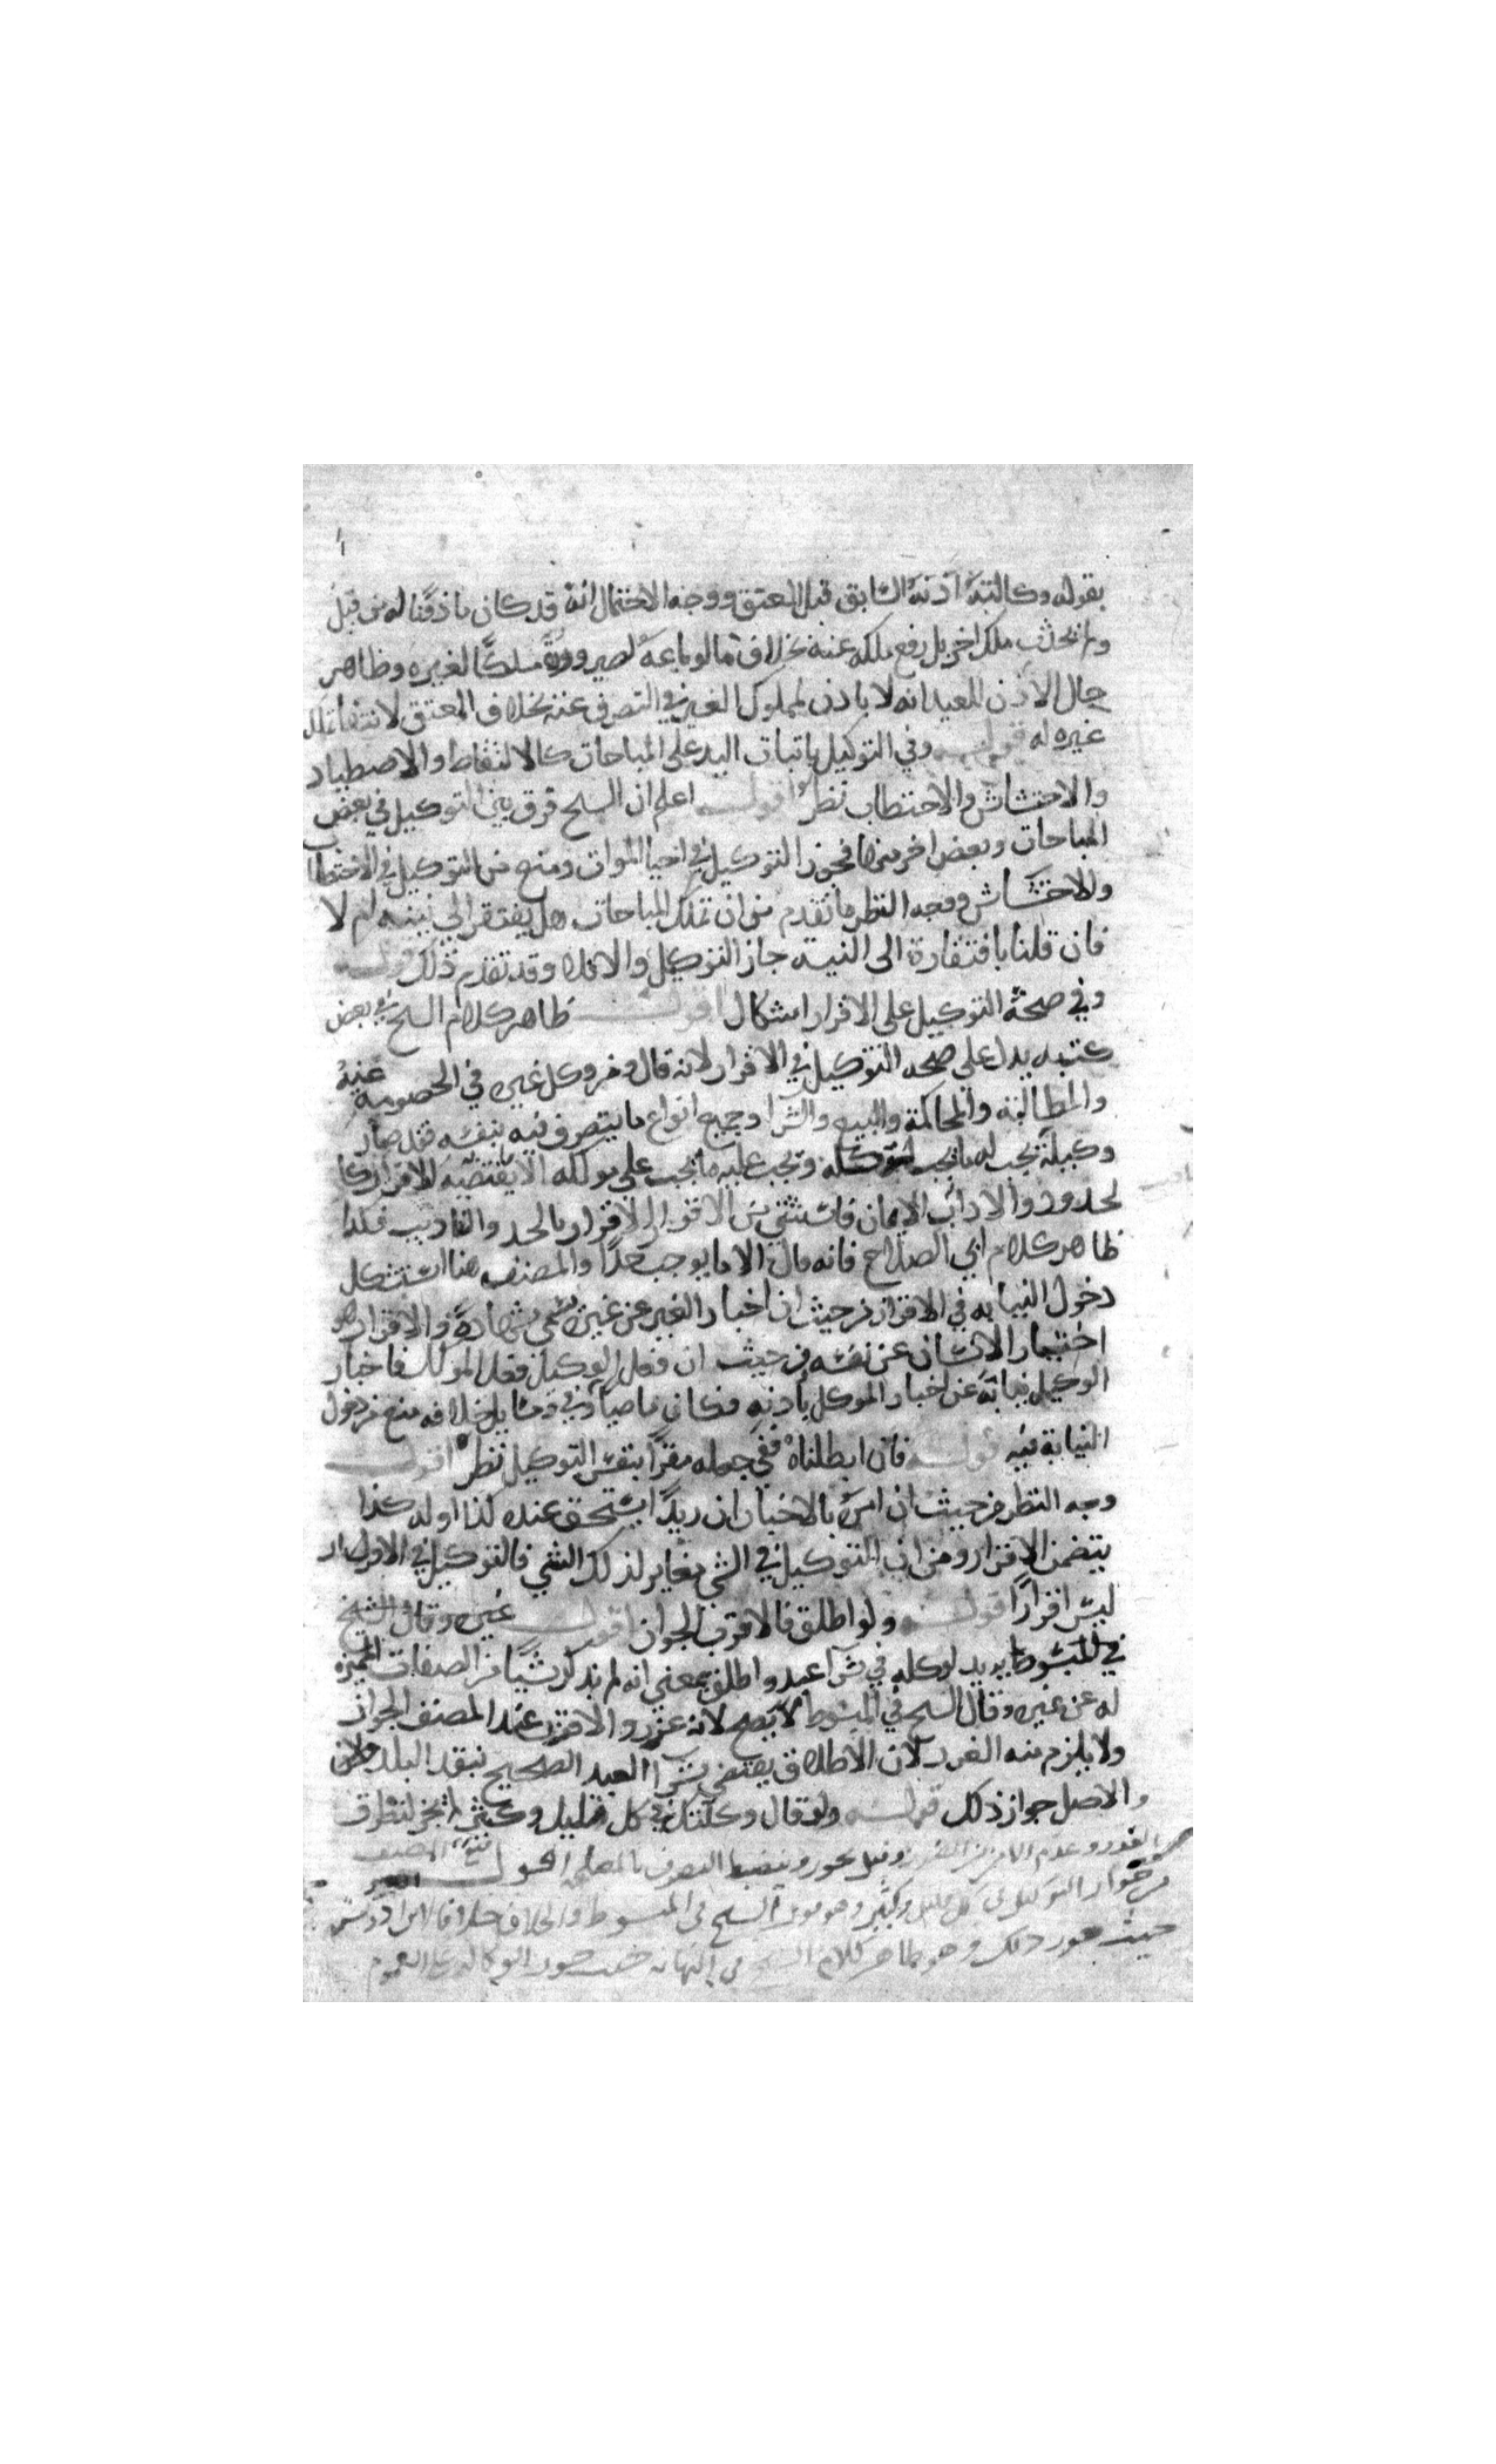 بقوله وكالته اذنه السابق قبل المعتق ووجه الاحتمال انه قد كان ماذونا له من قبل
ولم يحدث ملك اخر بل رفع ملكه عنه بخلاف ما لو باعه لصيرورة ملكا لغيره وظاهر
حال الاذن للعبد انه لا ياذن لمملوك الغير في التصرف عنه بخلاف المعتق لانتفا تملك
غيره له قوله وفي التوكيل باثبات اليد على المباحات كالالتقاط والاصطياد
والاحتشاش والاحتطاب نظر اقول اعلم ان الشيخ فرق بين التوكيل في بعض
المباحات وبعض اخر منها فجوز التوكيل في احيا الموات ومنع من التوكيل في الاحتطاب
والاحتشاش ووجه النظر ما تقدم من ان تملك المباحات هل يفتقر الى نيته ام لا
فان قلنا بافتقارة الى النية جاز التوكيل والا فلا وقد تقدم ذلك قوله
وفي صحة التوكيل على الاقرار اشكال اقول ظاهر كلام الشيخ في بعض
كتبه يدل على صحه التوكيل في الاقرار لانه قال ومن وكل غيره في الخصومة عنه
والمطالبه والمحاكمة والبيع والشرا وجميع انواع ما يتصرف فيه بنفسه فقد صار
وكيله يجب له ما يجب لموكله ويجب عليه ما يجب على موكله الا ما يقتضيه الاقرار كا
لحدود والاداب الايمان فاستثنى من الاقرار الاقرار بالحد والتاديب فكذا
ظاهر كلام ابي الصلاح فانه قال الا ما يوجب حدا والمصنف هنا استشكل
دخول النيابه في الاقرار من حيث ان اخبار الغير عن غيره يسمى شهادة والاقرار هو
اختبار الانسان عن نفسه من حيث ان فعل الوكيل فعل الموكل فاخبار
الوكيل نيابة عن اخبار الموكل باذنه فكان ماضيا وفي مسايل خلافه منع من دخول
النيابة فيه قوله فان ابطلناه ففي جعله مقرا بنفس التوكيل نظر اقول
وجه النظر من حيث ان امره بالاخبار ان زيدا يستحق عنده كذا او له كذا
يتضمن الاقرار ومن ان التوكيل في الشي مغاير لذلك الشي فالتوكيل في الاقرار
ليس اقرارا قوله ولو اطلق فالاقرب الجواز اقول غيره وقال الشيخ
في المبسوط يريد لوكله في شرا عبد واطلق بمعنى انه لم يذكر شيا من الصفات المميزه
له عن غيره وقال الشيخ في المبسوط لا يصح لانه غرر والاقرب عند المصنف الجواز
ولا يلزم منه الغرر لان الاطلاق يقتضي شرا العبد الصحيح بنقد البلد ولان
والاصل جواز ذلك قوله ولو قال وكلتك في كل قليل وكثير لم يجز لتطرق
الغرر وعدم الامن من الضرر وقيل يجوز وينضبط التصرف بالمصلحة اقول المصنف
من جواز التوكيل في كل قليل وكثير وهو قول الشيخ في المبسوط والخلاف خلافا لابن ادريس
حيث جوز ذلك وهو ظاهر كلام الشيخ في النهايه حيث جوز الوكاله على العموم